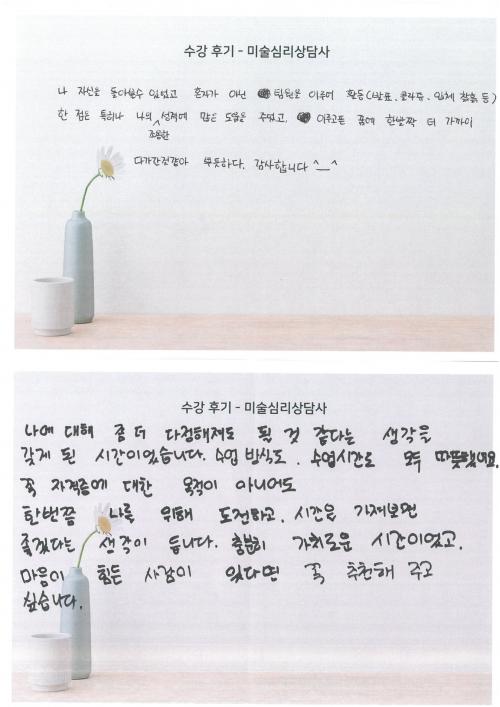 수강 후기 - 미술심리상담사
나 자신을 돌아볼수 있었고 혼자가 아닌 팀원을 이루어 활동(발표, 콜라쥬, 입체 찰흙 등)
한 점은 특히나 나의 조용한 성격에 많은 도움을 주었고, 이루고픈 꿈에 한발짝 더 가까이
다가간것같아 뿌듯하다. 감사합니다 ^__^
수강 후기 - 미술심리상담사
나에 대해 좀 더 다정해져도 될 것 같다는 생각을
갖게 된 시간이었습니다. 수업 방식도, 수업시간도 모두 따뜻했네요.
꼭 자격증에 대한 목적이 아니어도
한번쯤 나를 위해 도전하고, 시간을 가져보면
좋겠다는 생각이 듭니다. 충분히 가치로운 시간이었고,
마음이 힘든 사람이 있다면 꼭 추천해 주고
싶습니다.